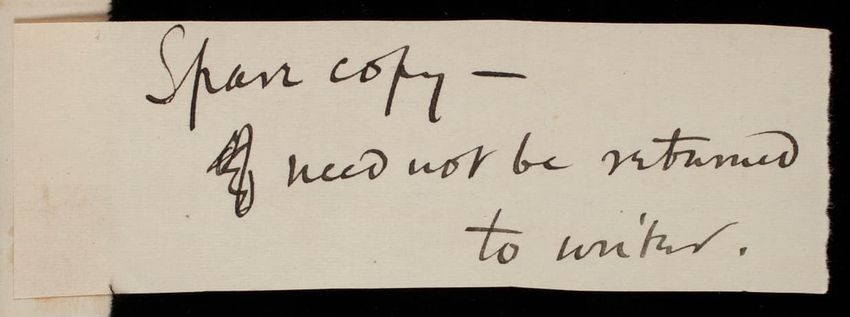 Spare copy —
need not be returned
to writer.